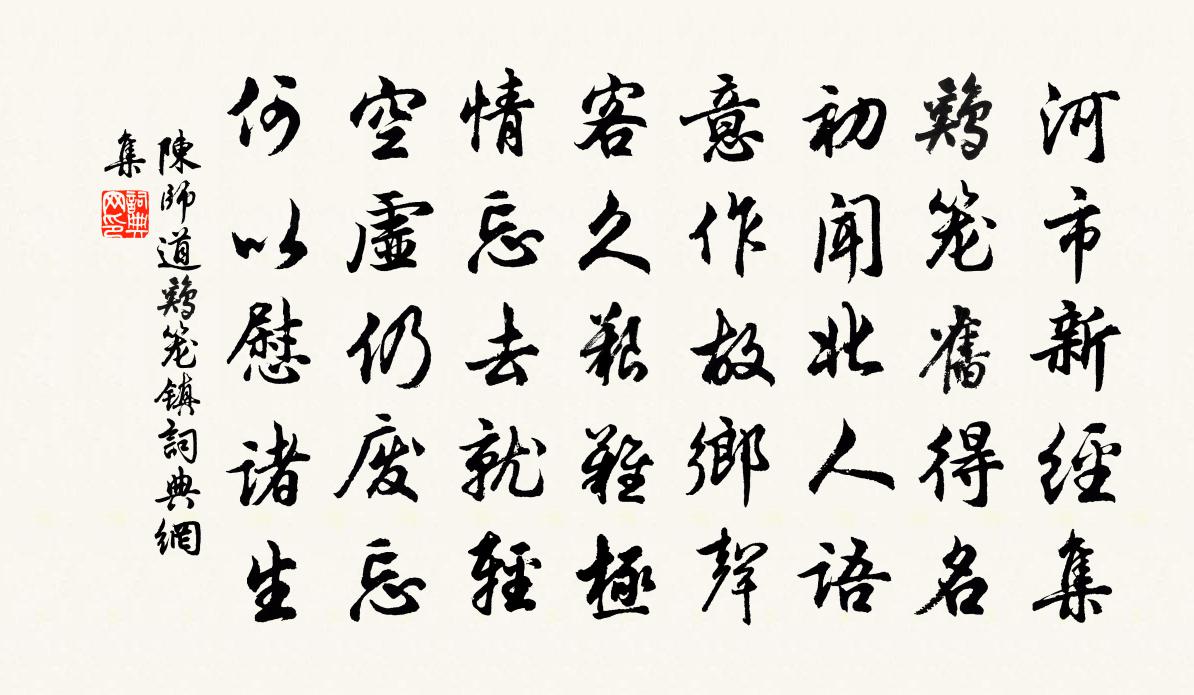 河市新經集
鷄笼舊得名
初聞北人語
意作故鄉聲
客久艱難極
情忘去就輕
空虛仍废忘
何以慰諸生
陳師道鷄笼鎮詞典網
集
詞典
网印